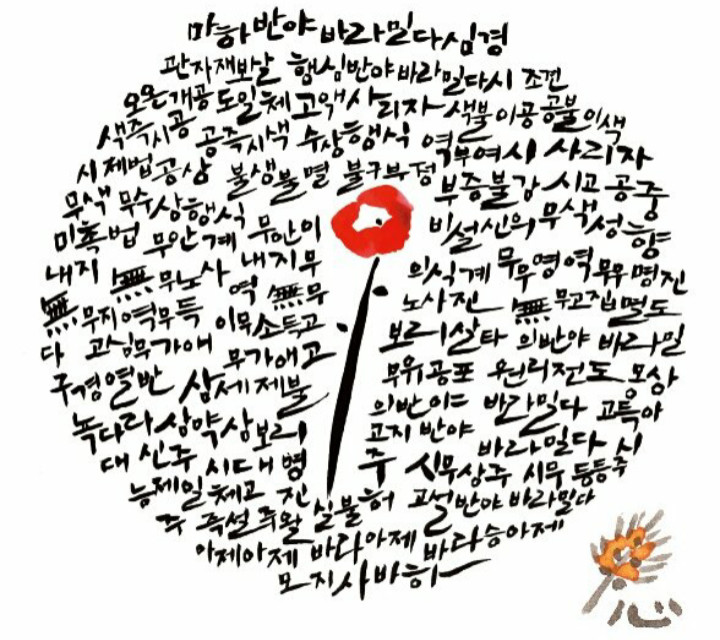 마하반야 바라밀다심경
관자재보살 행심반야바라밀다시 조견
오온개공 도일체고액 사리자 색불이공 공불이색
색즉시공 공즉시색 수상행식 역부여시 사리자
시제법공상 불생불멸 불구부정 부증불감 시고 공중
무색 무수상행식 무안이 비설신의 무색성향
미촉법 무안계 내지무 의식계 무무명 역무무명진
내지 無무노사 역無무 노사진 無무고집멸도
無무지역무득 이무소득고 보리살타 의반야 바라밀
다 고심무가애 무가애고 무유공포 원리전도 몽상
구경열반 삼세제불 의반야 바라밀다 고득아
녹다라 삼먁삼보리 고지 반야 바라밀다 시
대 신주 시대명 주 시무상주 시무등등주
능제일체고 진실불허 고설반야바라밀다
주 즉설주왈
아제아제 바라아제 바라승아제
모지사바하
心